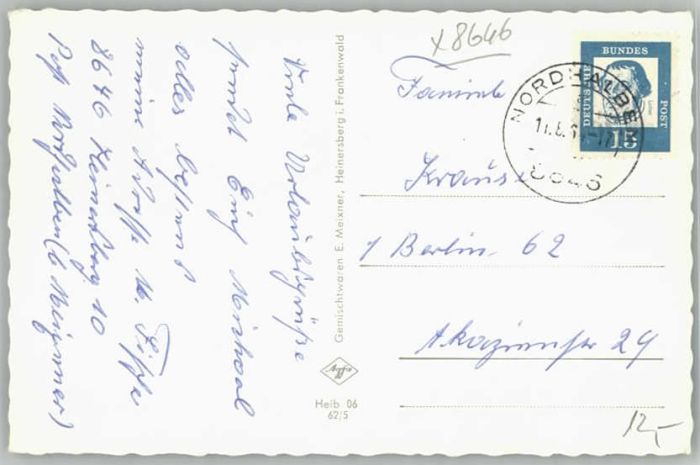 x8646
Familie
Krause
1 Berlin 62
Akazienstr 29
Viele Urlaubsgrüße
sendet Euch Michael
alles bestens
meine Adresse
8646 Heinersberg 10
Post Nordhalben (b Meixner)
Gemischtwaren E. Meixner, Heinersberg i. Frankenwald
Heib 06
62/5
NORDHALBEN
8646
DEUTSCHE
BUNDES
POST
15
12,-